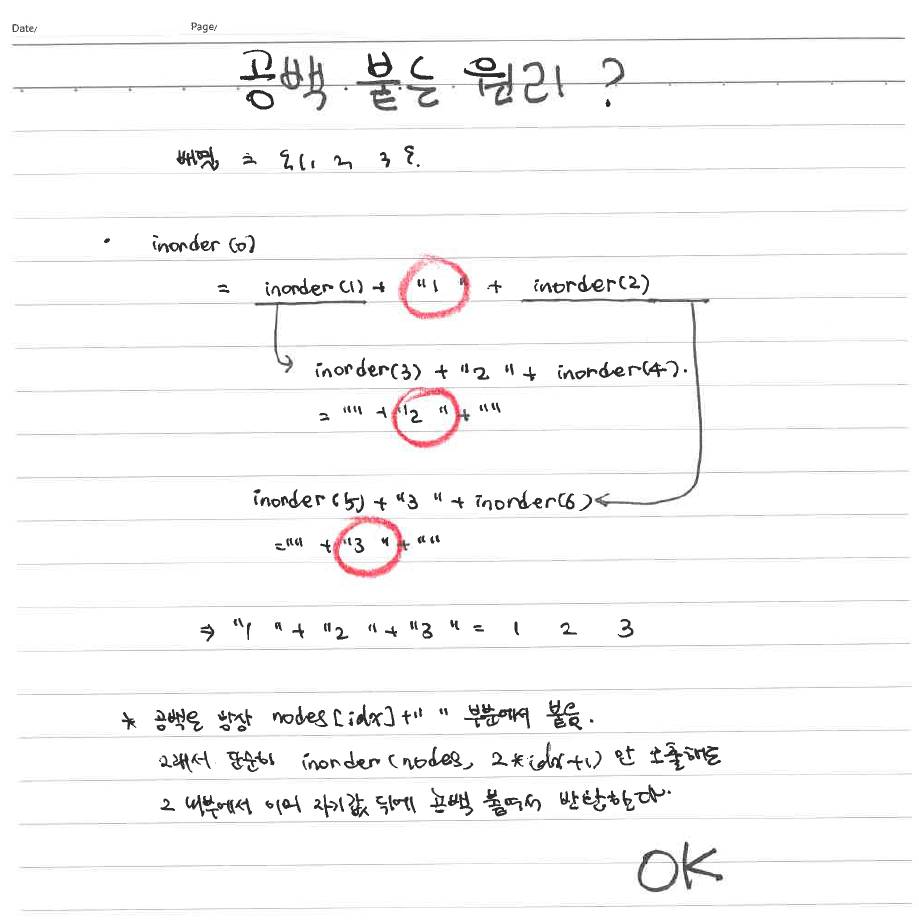 Date/ Page/
공백 붙는 원리 ?
배열 = {1, 2, 3 }.
· inorder (0)
= inorder (1) + "1 " + inorder(2)
inorder(3) + "2 " + inorder(4).
= "" + "2 " + ""
inorder(5) + "3 " + inorder(6)
="" + "3 " + ""
⇒ "1 " + "2 " + "3 " = 1 2 3
* 공백은 항상 nodes[idx]+" " 부분에서 붙음.
그래서 단순히 inorder(nodes, 2*idx+1) 만 호출해도
그 내부에서 이미 자기값 뒤에 공백 붙여서 반환한다.
OK